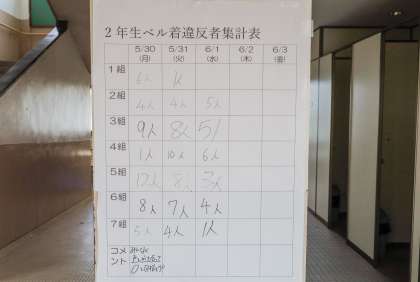 2年生ベル着違反者集計表
5/30(月) 5/31(火) 6/1(水) 6/2(木) 6/3(金)
1組 6人 1人
2組 4人 4人 5人
3組 9人 8人 5人
4組 1人 10人 6人
5組 3人
6組 8人 7人 4人
7組 5人 4人 1人
コメント